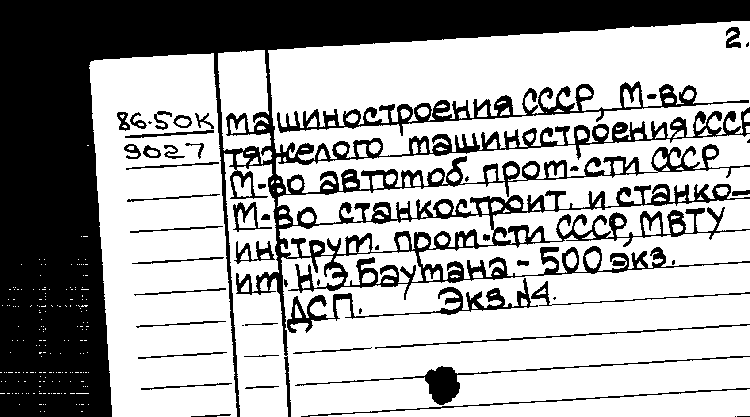 2.
86-50К машиностроения СССР, М-во
9027 тяжелого машиностроения СССР,
М-во автомоб. пром-сти СССР,
М-во станкостроит. и станко-
инструм. пром-сти СССР, МВТУ
им. Н.Э.Баумана - 500 экз.
ДСП. Экз.№4.